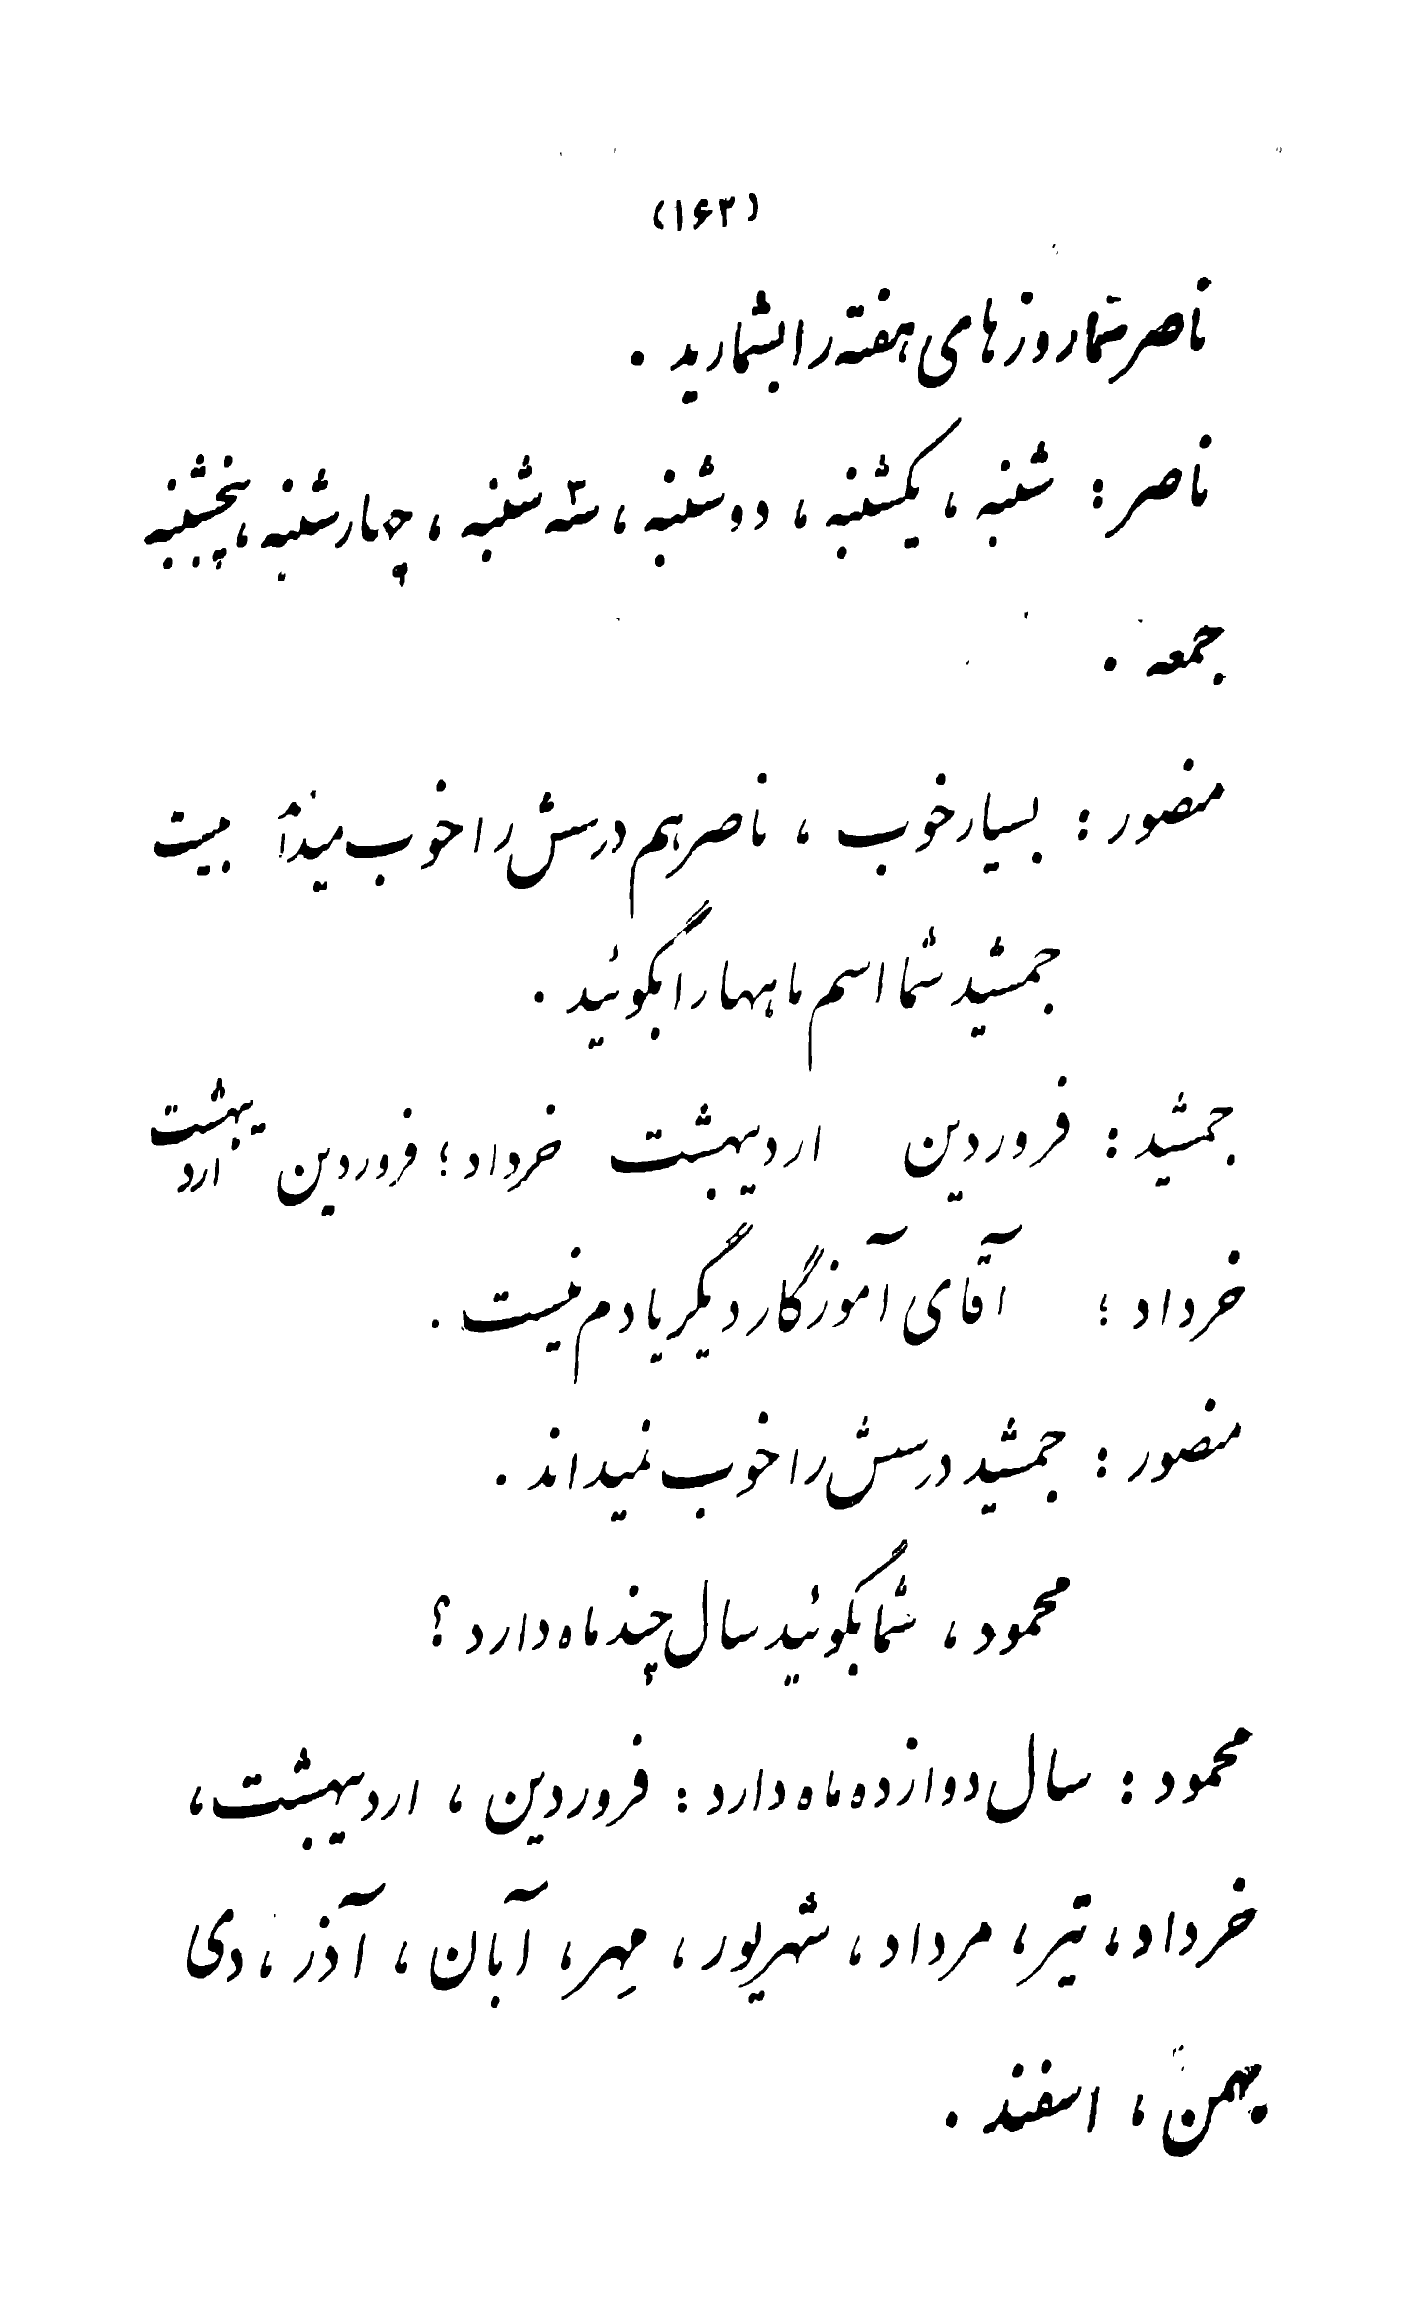 (۱۶۳)
ناصر شما روزهای هفته را بشمارید .
ناصر : شنبه ، یکشنبه ، دوشنبه ، سه شنبه ، چهارشنبه ، پنجشنبه
جمعه .
منصور : بسیار خوب ، ناصر هم درسش را خوب میداند بیست
جمشید شما اسم ماهها را بگوئید .
جمشید : فروردین اردیبهشت خرداد ؛ فروردین اردیبهشت
خرداد ؛ آقای آموزگار دیگر یادم نیست .
منصور : جمشید درسش را خوب نمیداند .
محمود ، شما بگوئید سال چند ماه دارد ؟
محمود : سال دوازده ماه دارد : فروردین ، اردیبهشت ،
خرداد ، تیر ، مرداد ، شهریور ، مِهر ، آبان ، آذر ، دی
بهمن ، اسفند .